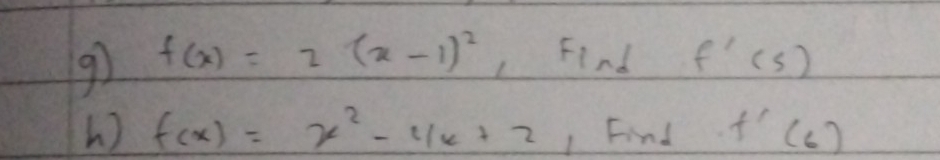 g) f(x) = 2 (x - 1)², Find f'(5)
h) f(x) = x² - 4x + 2, Find f'(6)